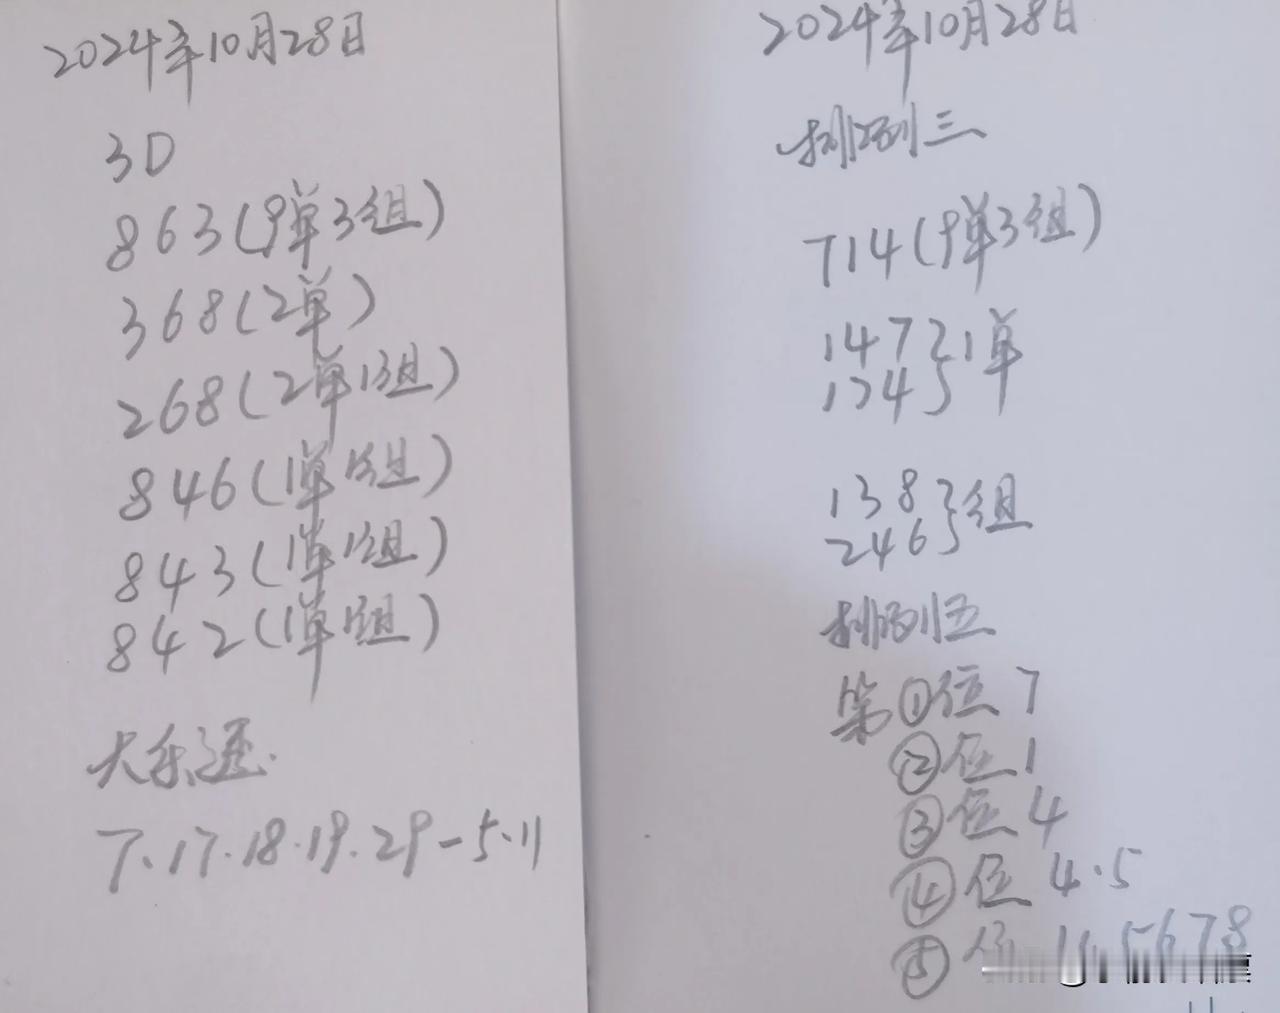 2024年10月28日
3D
863(9单3组)
368(2单)
268(2单1组)
846(1单1组)
843(1单1组)
842(1单1组)
大乐透.
7.17.18.19.29-5.11
2024年10月28日
排列三
714(9单3组)
147}1单
174
138}组
246
排列五
第①位7
②位1
③位4
④位4.5
⑤位 5678